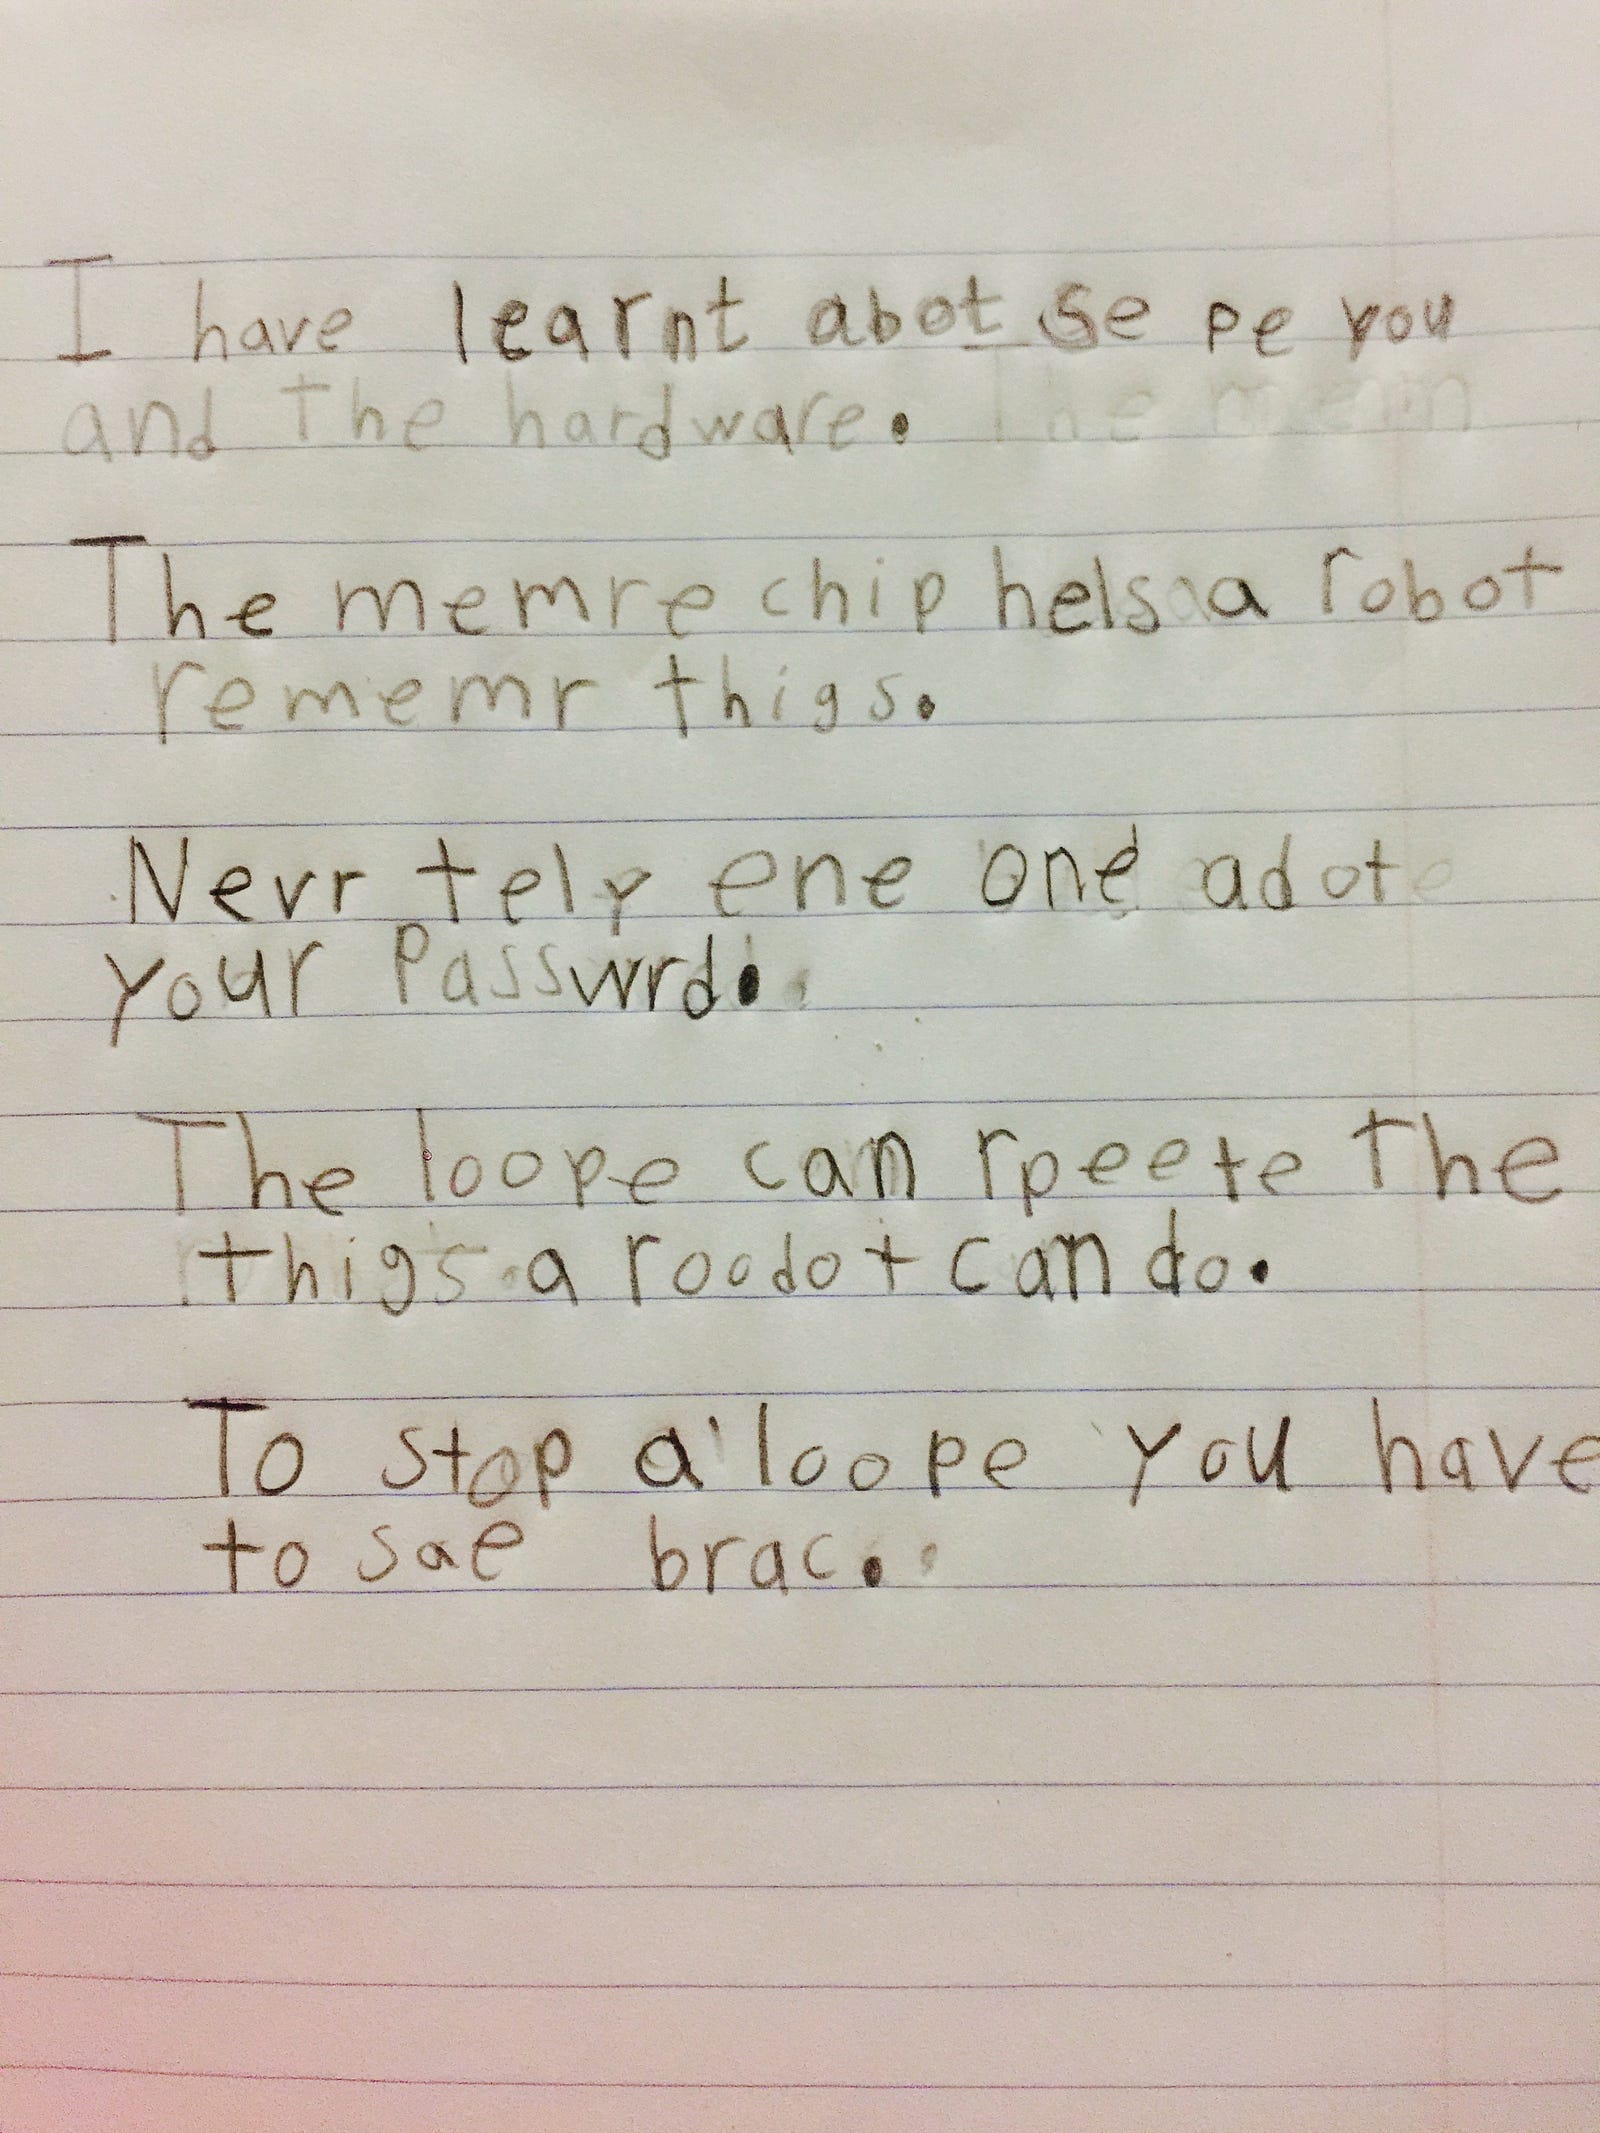 I have learnt abot se pe you
and the hardware. The mem
The memre chip hels a robot
rememr thigs.
Nevr tely ene one adot
your Passwrd.
The loope can rpeete the
thigs a roodot can do.
To stop a loope you have
to sae brac.